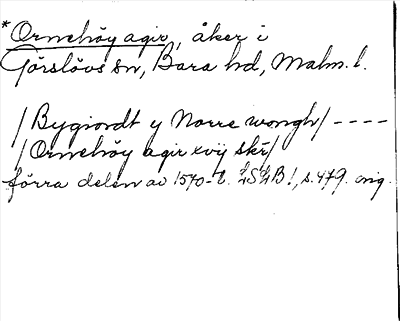 *Ornehöy agir, åker i
Görslövs sn, Bara hd, Malm. l.
/Bygiordt y Norre wongh/ ----
/Ornehöy agir xvij skr/
förra delen av 1570-t. LSLB!, s. 479. orig.